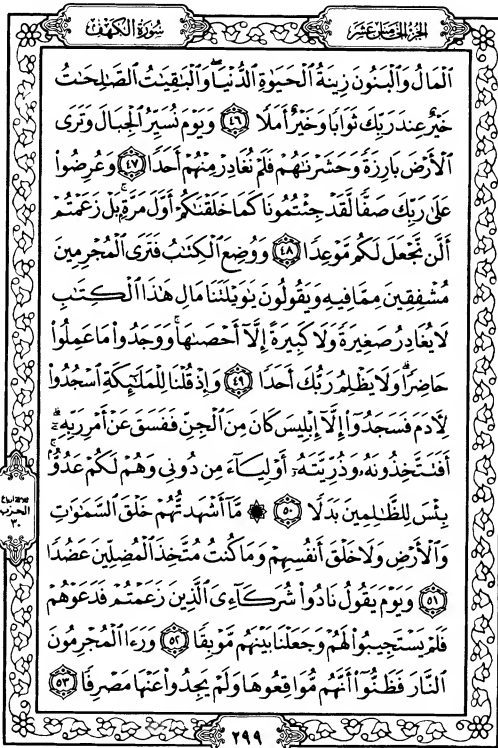 الجزء الخامس عشر
سورة الكهف
المال والبنون زينة الحيوة الدنيا والبقيت الصلحت
خير عند ربك ثوابا وخير أملا ٤٦ ويوم نسير الجبال وترى
الأرض بارزة وحشرنهم فلم نغادر منهم أحدا ٤٧ وعرضوا
على ربك صفا لقد جئتمونا كما خلقنكم أول مرة بل زعمتم
ألن نجعل لكم موعدا ٤٨ ووضع الكتب فترى المجرمين
مشفقين مما فيه ويقولون يويلتنا مال هذا الكتب
لا يغادر صغيرة ولا كبيرة إلا أحصىها ووجدوا ما عملوا
حاضرا ولا يظلم ربك أحدا ٤٩ وإذ قلنا للملئكة اسجدوا
لأدم فسجدوا إلا إبليس كان من الجن ففسق عن أمر ربه
أفتتخذونه وذريته أولياء من دوني وهم لكم عدو
بئس للظلمين بدلا ٥٠ ۞ ما أشهدتهم خلق السموت
والأرض ولا خلق أنفسهم وما كنت متخذ المضلين عضدا
٥١ ويوم يقول نادوا شركاءي الذين زعمتم فدعوهم
فلم يستجيبوا لهم وجعلنا بينهم موبقا ٥٢ ورءا المجرمون
النار فظنوا أنهم مواقعوها ولم يجدوا عنها مصرفا ٥٣
الحزب
٣٠
٢٩٩